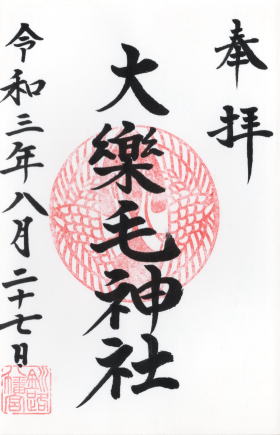 奉拝
大樂毛神社
令和三年八月二十七日